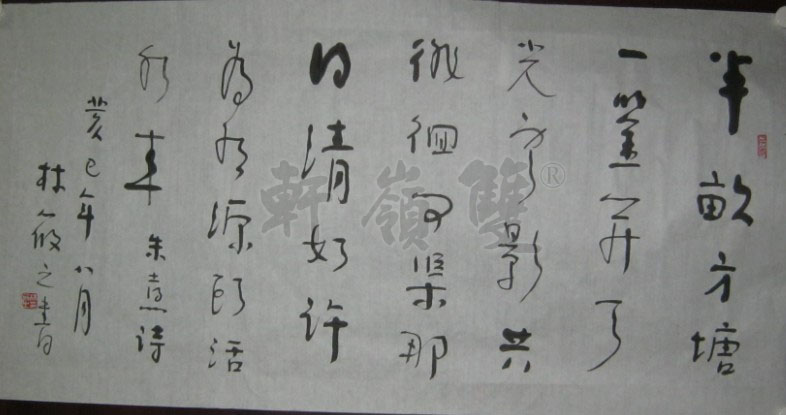 半畝方塘
一鑒开天
光雲影共
徘徊问渠那
得清如许
為有源頭活
水来 朱熹诗
癸巳年八月
林筱之書
雙嶺軒®